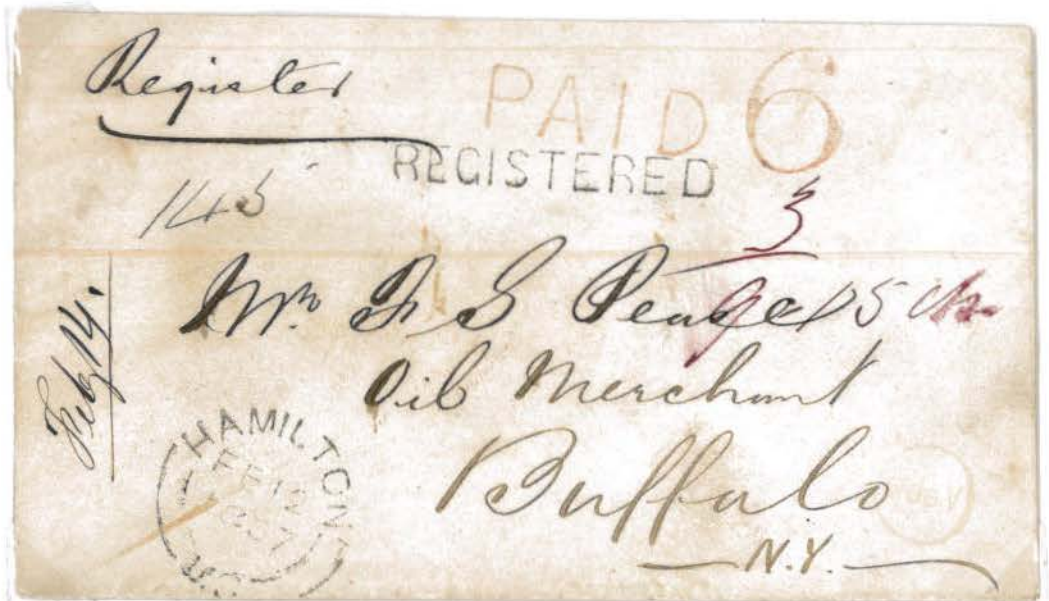 Register
PAID 6
REGISTERED
145
3
Mr. F S Pease
Oil Merchant
Buffalo
N.Y.
Feb 14.
HAMILTON
FE 12